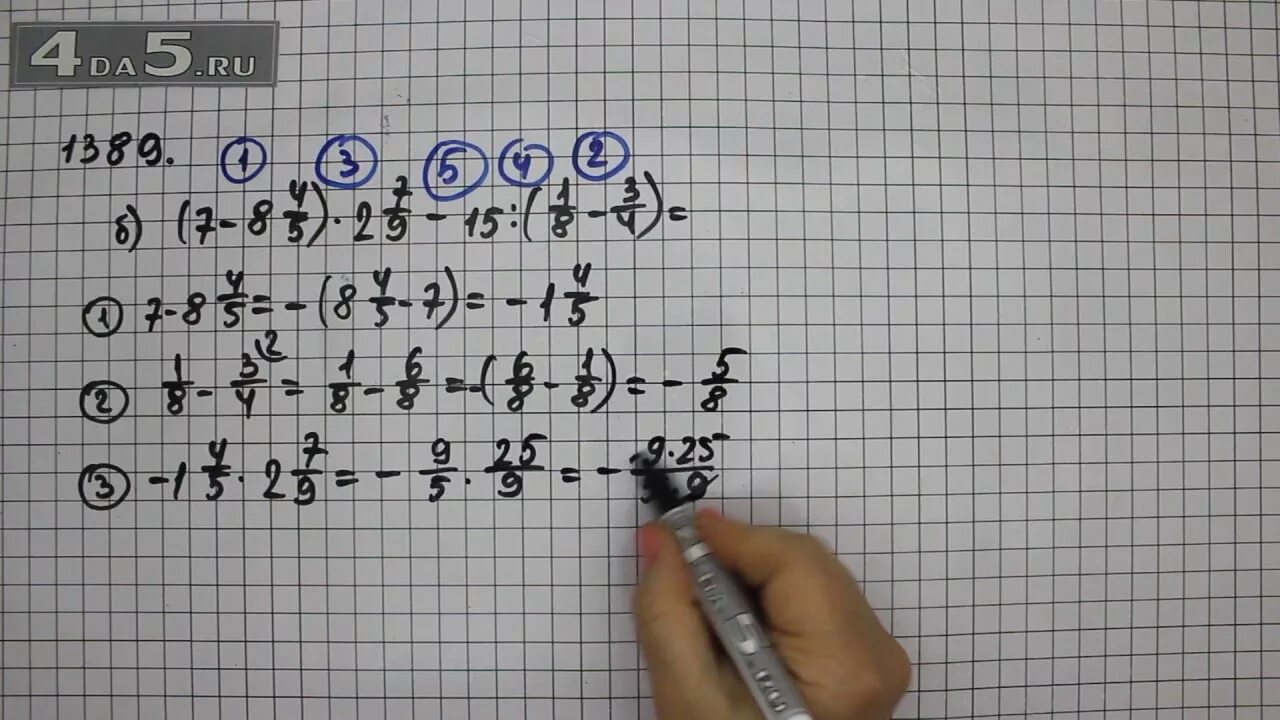 4DA5.RU
1389.
① ③ ⑤ ④ ②
б) (7 - 8 4/5) · 2 7/9 - 15 : (1/8 - 3/4) =
① 7 - 8 4/5 = - (8 4/5 - 7) = - 1 4/5
② 1/8 - 3/4 (2 = 1/8 - 6/8 = -(6/8 - 1/8) = - 5/8
③ - 1 4/5 · 2 7/9 = - 9/5 · 25/9 = - 9·25/5·9
DA5.RU